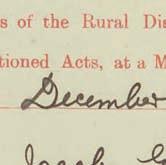 s of the Rural Dis
tioned Acts, at a M
December
Jacob